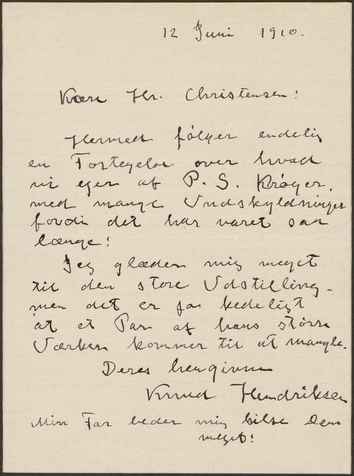 12 Juni 1910.
Kære Hr. Christensen!
Hermed følger endelig
en Fortegelse over hvad
vi ejer af P. S. Krøyer,
med mange Undskyldninger
fordi det har varet saa
længe!
Jeg glæder mig meget
til den store Udstilling -
men det er jo kedeligt
at et Par af hans større
Værker kommer til at mangle.
Deres hengivne
Knud Hendriksen
Min Far beder mig hilse Dem
meget!